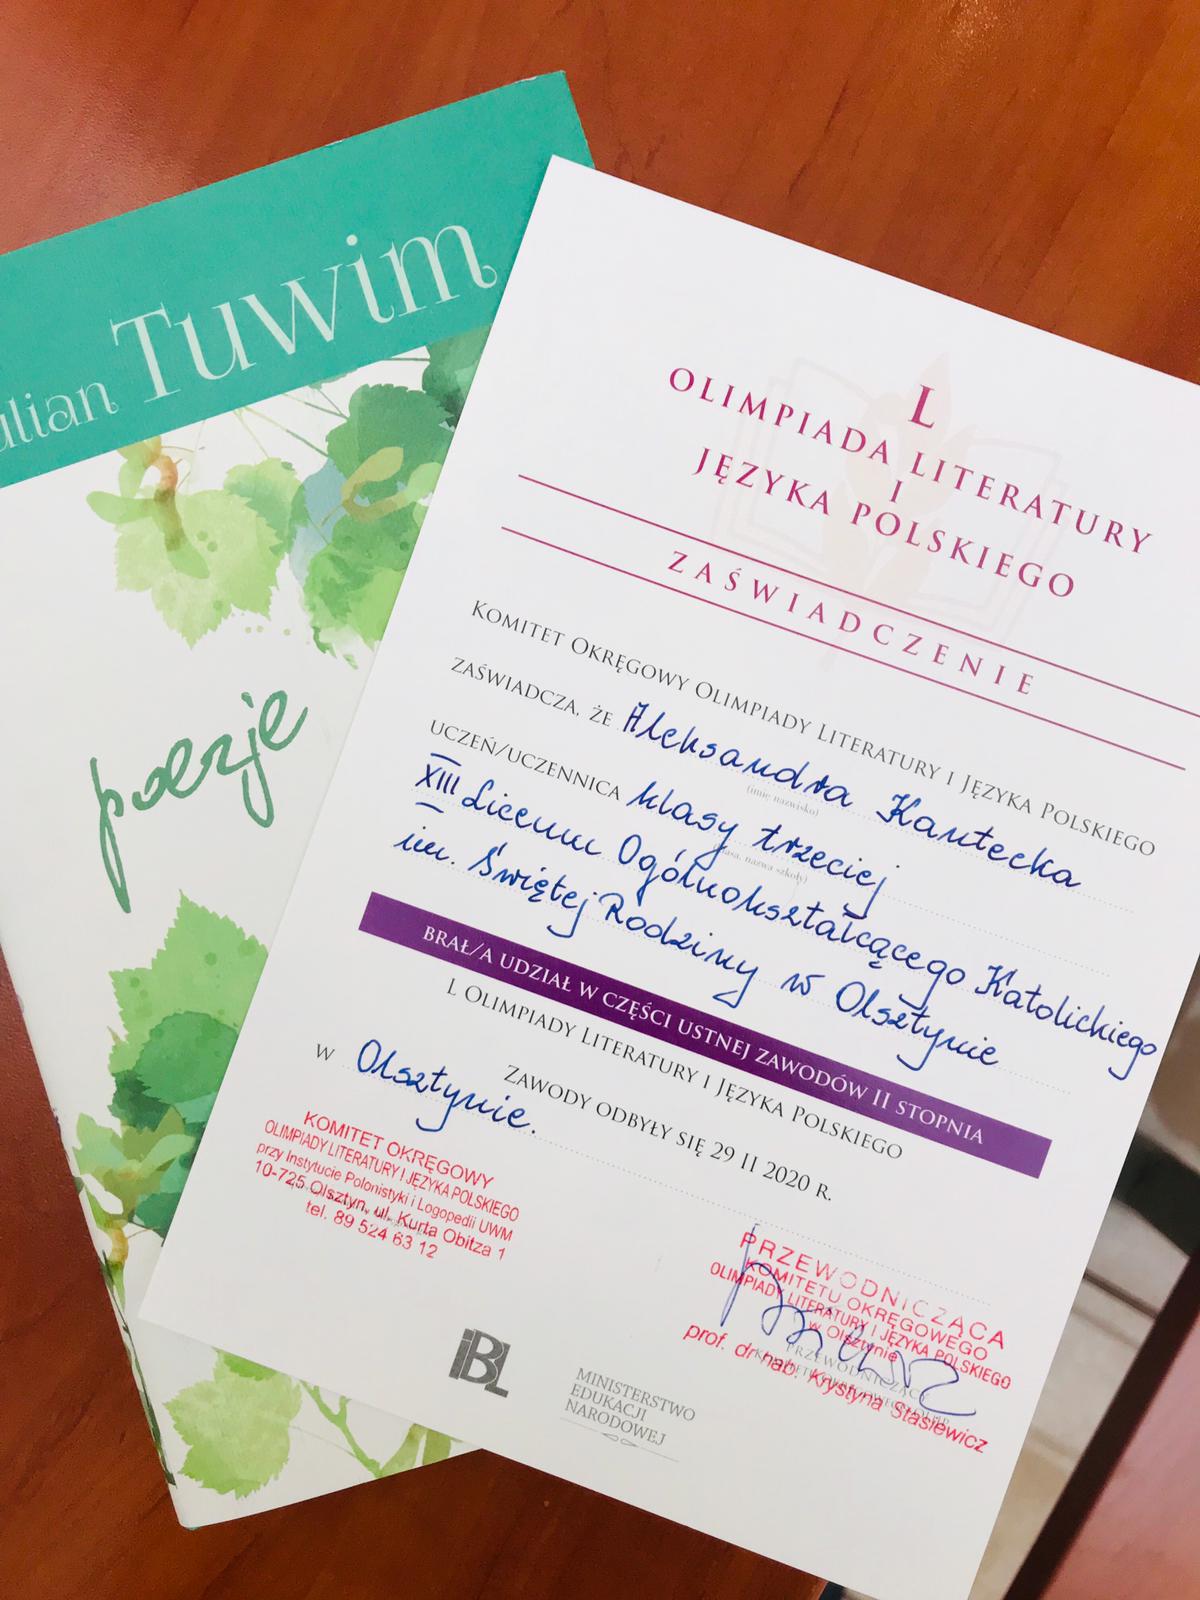 Julian Tuwim
poezje
L
OLIMPIADA LITERATURY
I
JĘZYKA POLSKIEGO
ZAŚWIADCZENIE
KOMITET OKRĘGOWY OLIMPIADY LITERATURY I JĘZYKA POLSKIEGO
ZAŚWIADCZA, ŻE Aleksandra Kantecka
(imię, nazwisko)
UCZEŃ/UCZENNICA klasy trzeciej
(klasa, nazwa szkoły)
XIII Liceum Ogólnokształcącego Katolickiego
im. Świętej Rodziny w Olsztynie
BRAŁ/A UDZIAŁ W CZĘŚCI USTNEJ ZAWODÓW II STOPNIA
L OLIMPIADY LITERATURY I JĘZYKA POLSKIEGO
ZAWODY ODBYŁY SIĘ 29 II 2020 R.
W Olsztynie.
KOMITET OKRĘGOWY
OLIMPIADY LITERATURY I JĘZYKA POLSKIEGO
przy Instytucie Polonistyki i Logopedii UWM
10-725 Olsztyn, ul. Kurta Obitza 1
tel. 89 524 63 12
PRZEWODNICZĄCA
KOMITETU OKRĘGOWEGO
OLIMPIADY LITERATURY I JĘZYKA POLSKIEGO
w Olsztynie
prof. dr hab. Krystyna Stasiewicz
PRZEWODNICZĄCY
IBL
MINISTERSTWO
EDUKACJI
NARODOWEJ